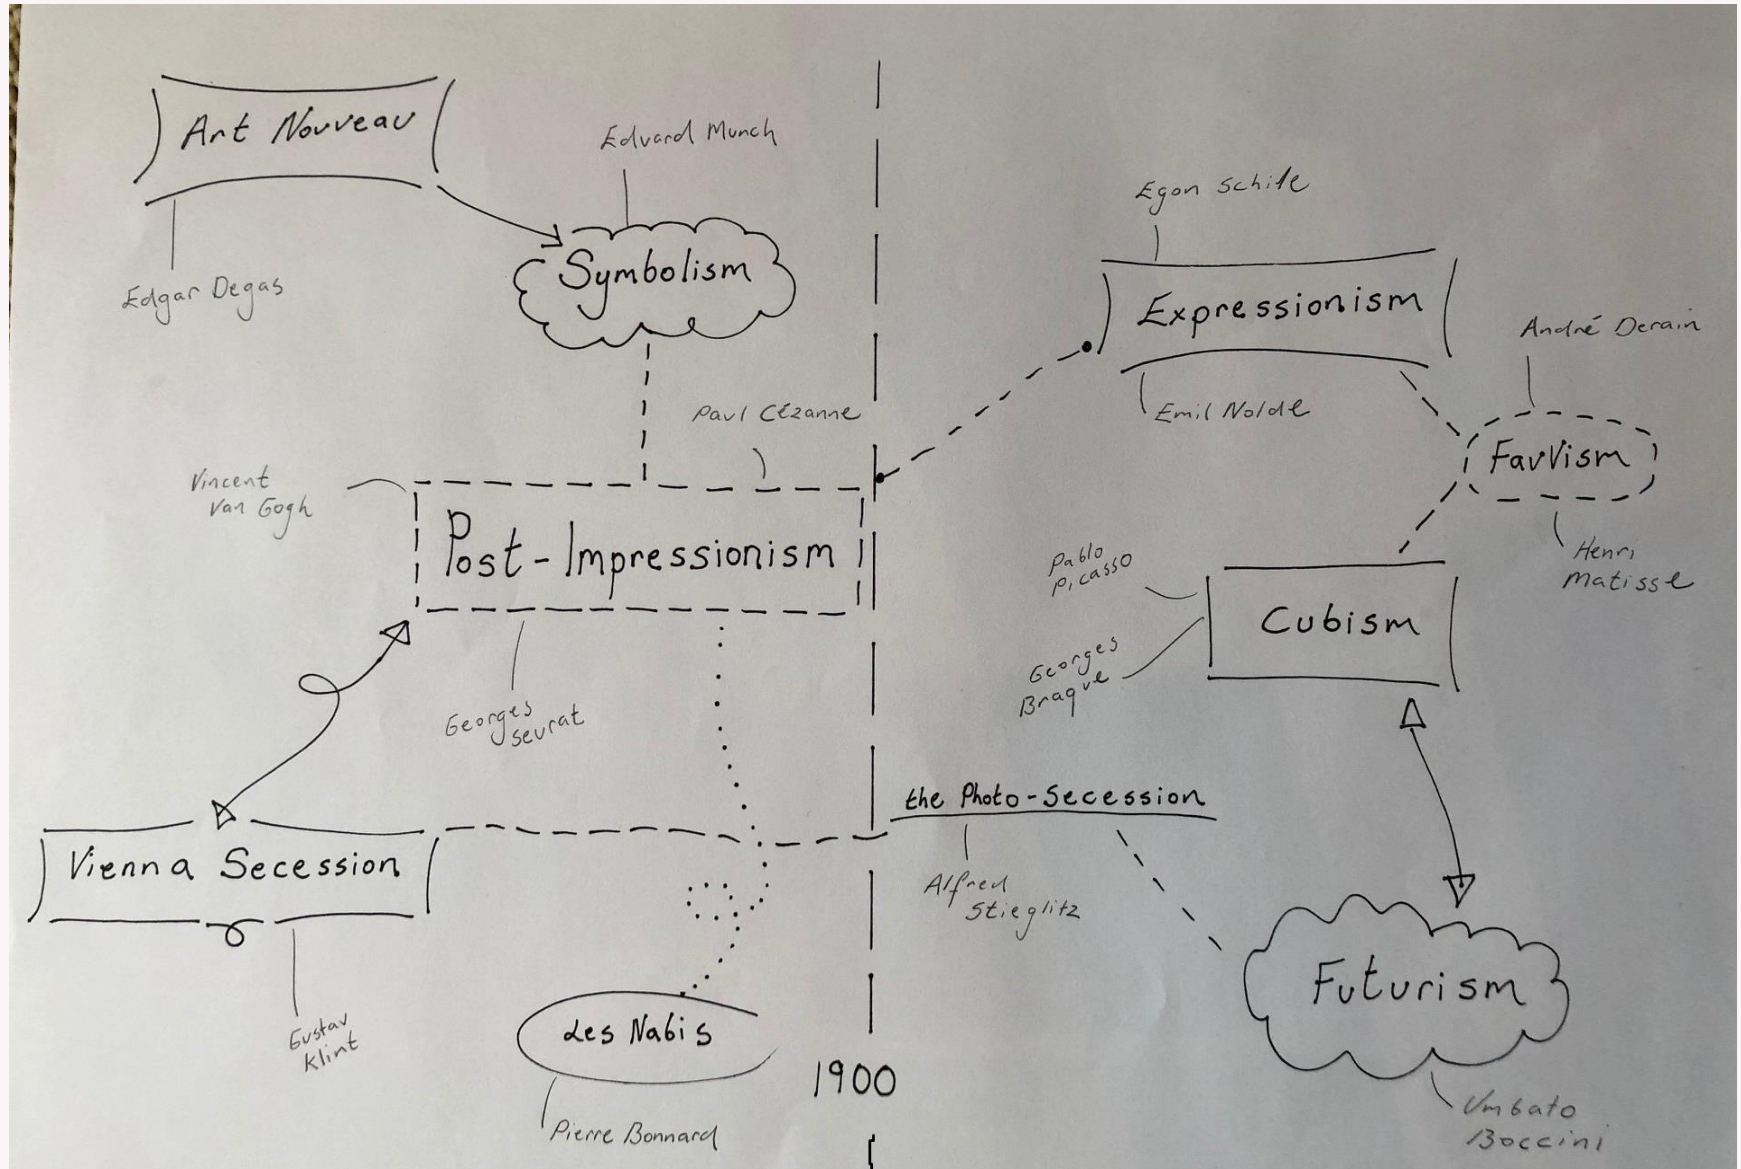 Art Nouveau
Edgar Degas
Edvard Munch
Symbolism
Paul Cézanne
Vincent
Van Gogh
Post-Impressionism
Georges
Seurat
Vienna Secession
Gustav
Klint
Les Nabis
Pierre Bonnard
1900
Egon Schile
Expressionism
Emil Nolde
André Derain
Fauvism
Henri
Matisse
Pablo
Picasso
Georges
Braque
Cubism
the Photo-Secession
Alfred
Stieglitz
Futurism
Umbato
Boccini